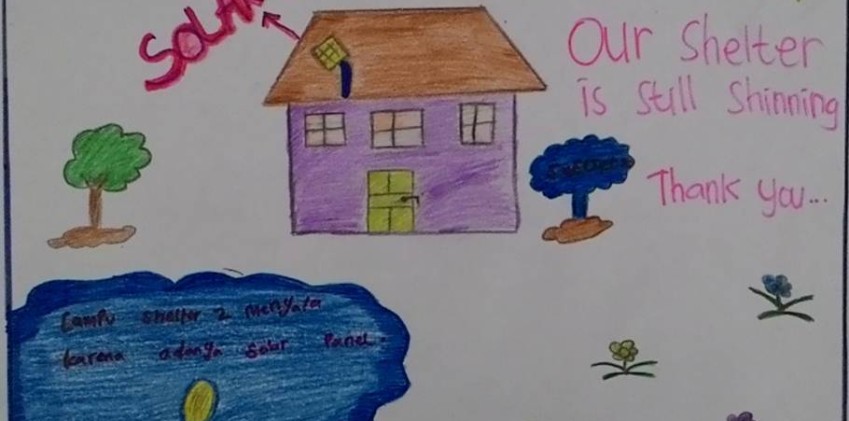 SOLAR
Our Shelter
is Still Shinning
Thank you...
Lampu shelter 2 menyala
karena adanya Solar Panel.